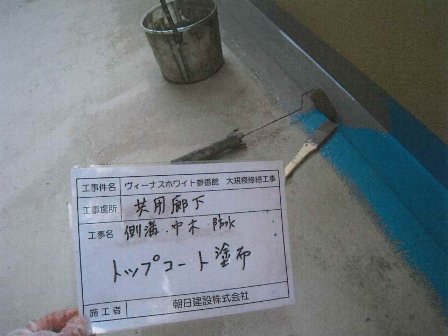 工事件名 ヴィーナスホワイト参番館 大規模修繕工事
工事場所 共用廊下
工事名 側溝・巾木 防水
トップコート塗布
施工者 朝日建設株式会社